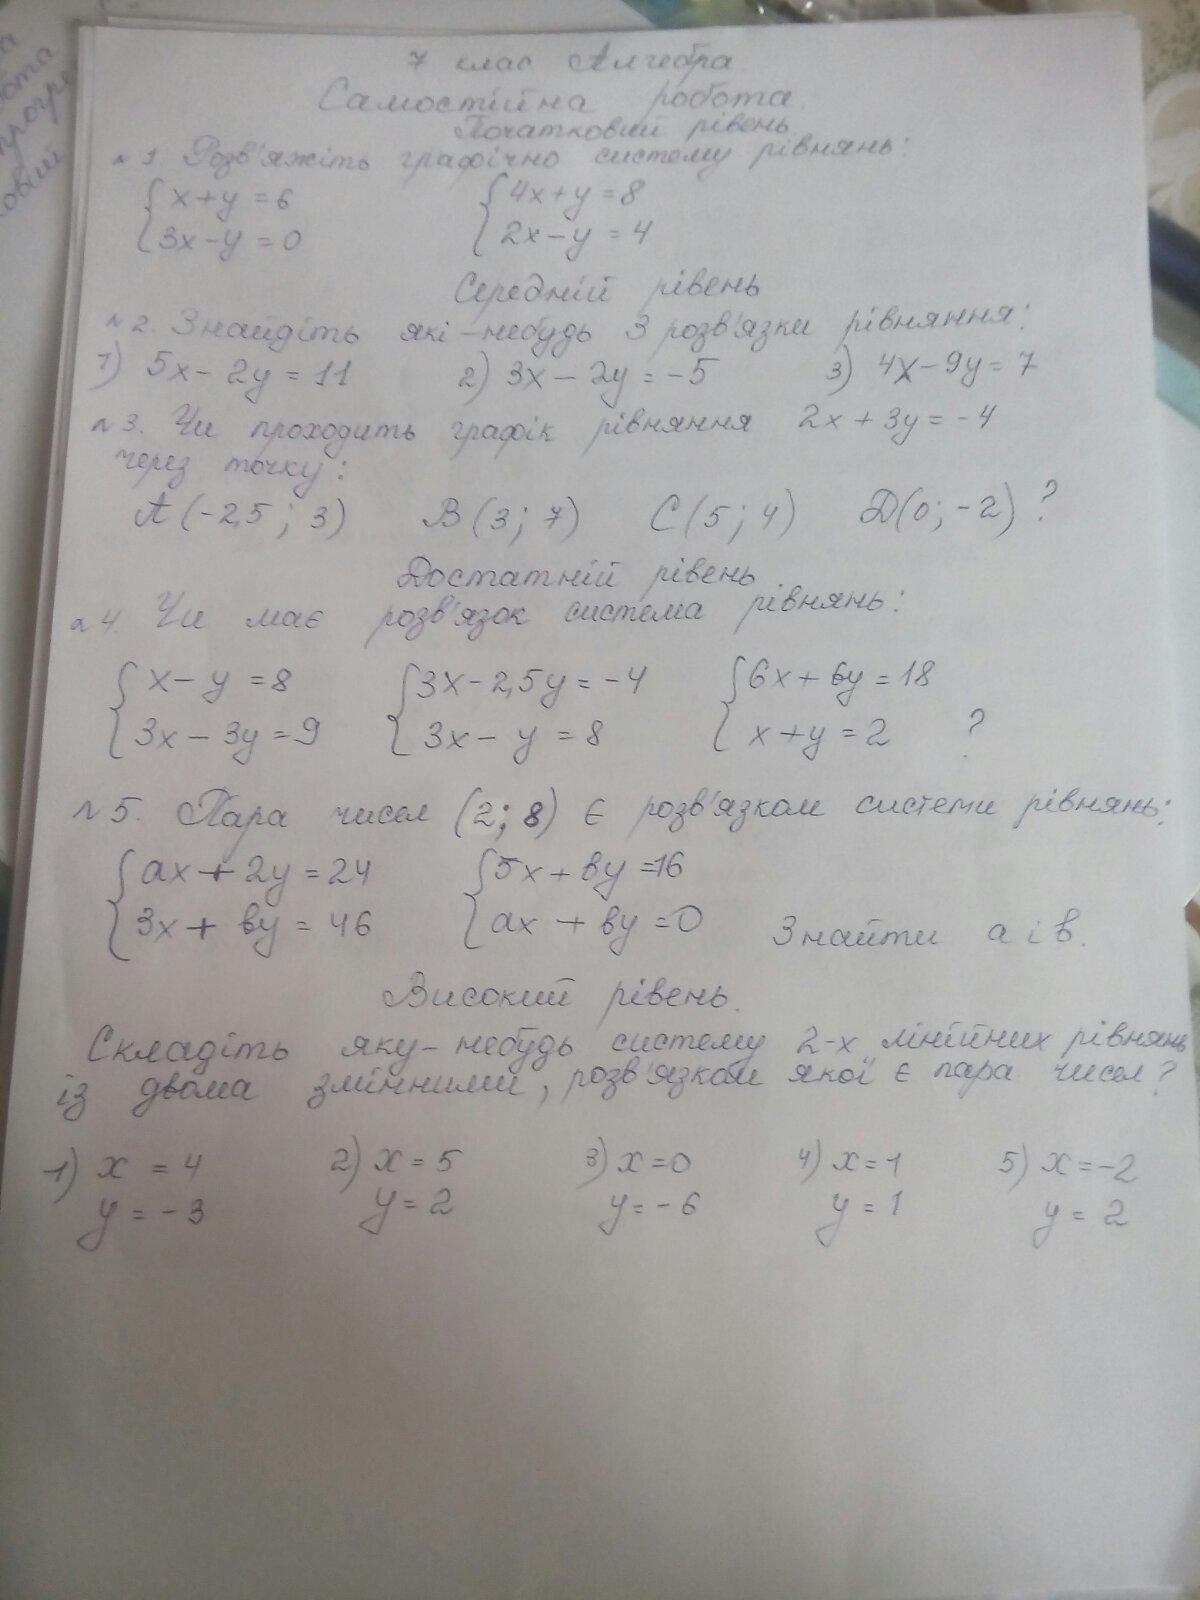 7 клас Алгебра
Самостійна робота.
Початковий рівень
№1 Розв'яжіть графічно систему рівнянь:
{x+y=6 {4x+y=8
{3x-y=0 {2x-y=4
Середній рівень
№2. Знайдіть які-небудь 3 розв'язки рівняння:
1) 5x-2y=11 2) 3x-2y=-5 3) 4x-9y=7
№3. Чи проходить графік рівняння 2x+3y=-4
через точку:
A(-2,5; 3) B(3; 7) C(5; 4) D(0; -2) ?
Достатній рівень
№4. Чи має розв'язок система рівнянь:
{x-y=8 {3x-2,5y=-4 {6x+6y=18
{3x-3y=9 {3x-y=8 {x+y=2 ?
№5. Пара чисел (2; 8) є розв'язком системи рівнянь:
{ax+2y=24 {5x+вy=16
{3x+вy=46 {ax+вy=0 Знайти a і в.
Високий рівень.
Складіть яку-небудь систему 2-х лінійних рівнянь
із двома змінними, розв'язком якої є пара чисел?
1) x=4 2) x=5 3) x=0 4) x=1 5) x=-2
y=-3 y=2 y=-6 y=1 y=2